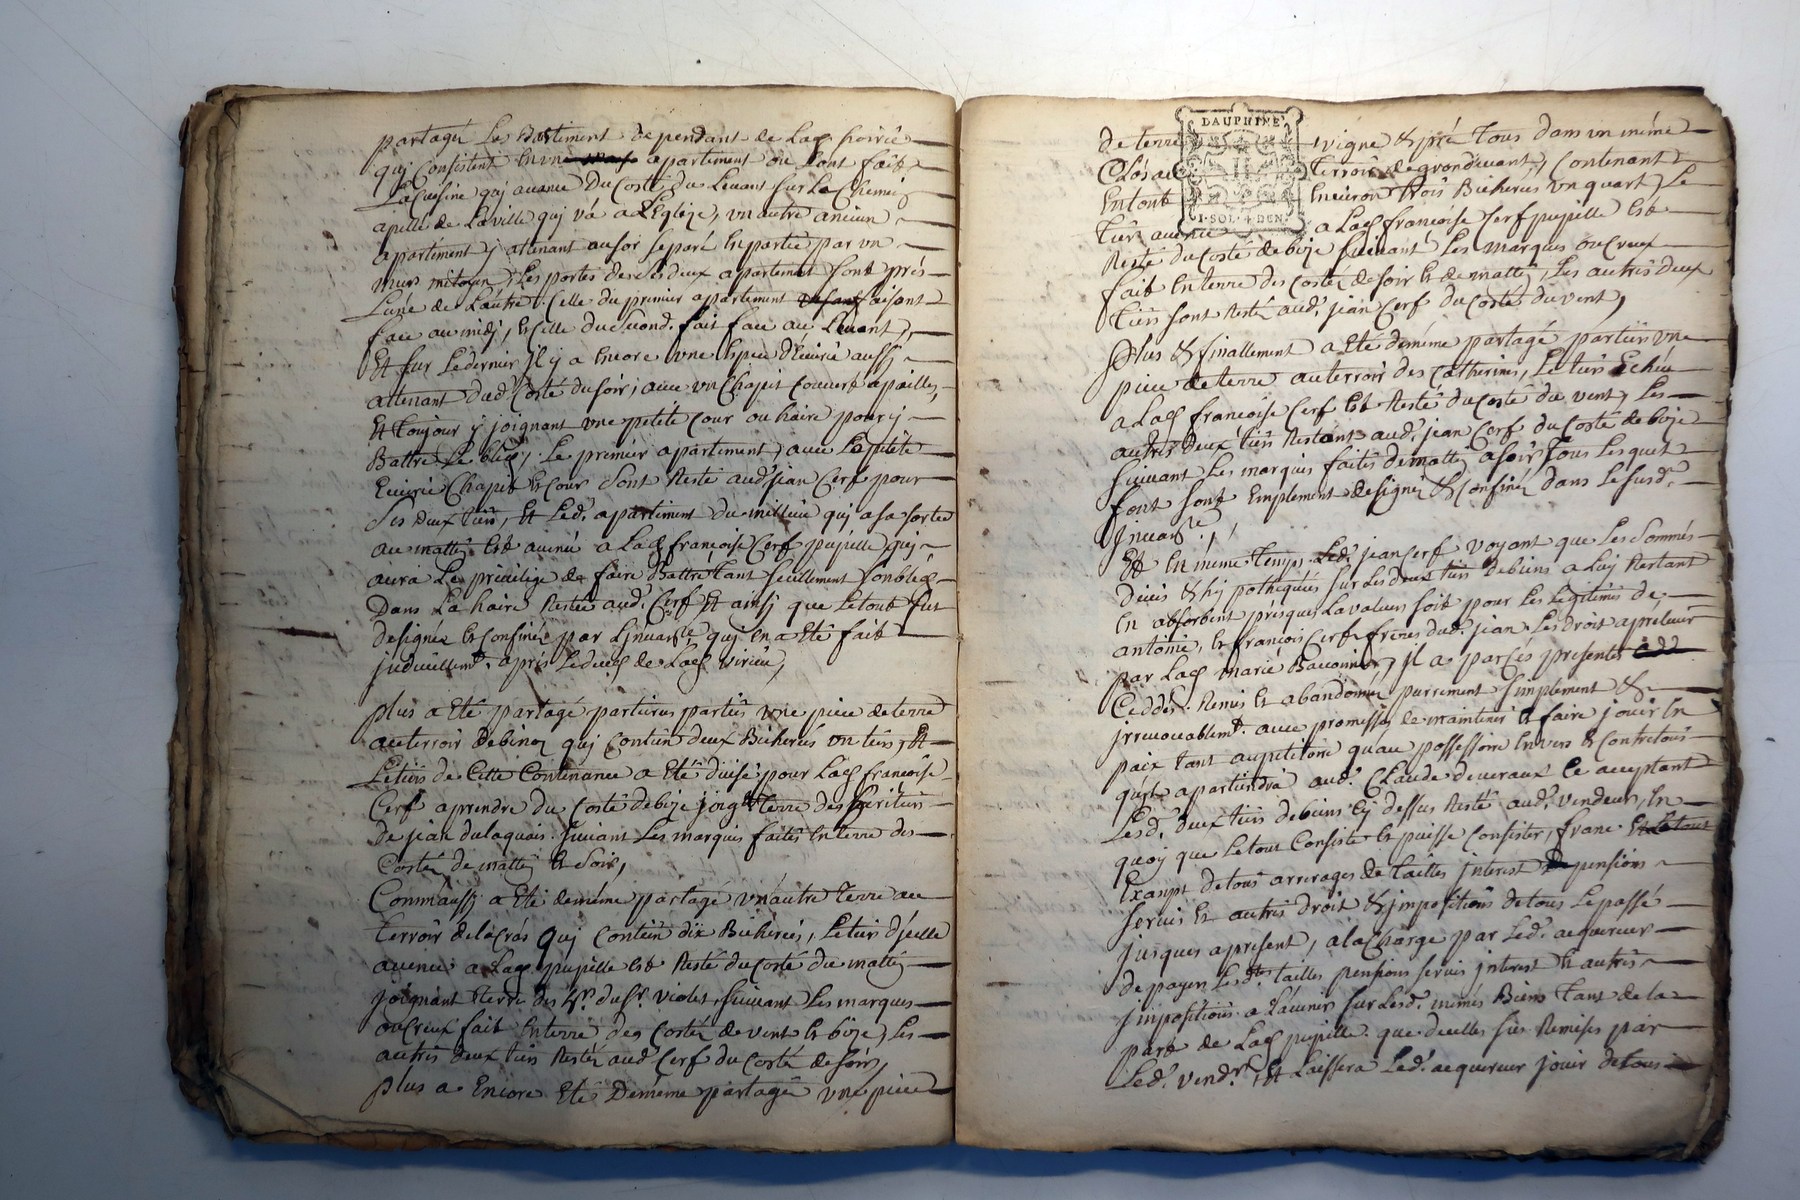 partagé Le Battiment dependant de Lad. hoirie
qui Consistent En un apartement ou L'ont fait
La Cuisine qui avance Du Costé du Levant sur Le Chemin
apellé de La ville qui va a L'Eglize, un autre ancien
apartement y attenant au soir separé En partie par un
mur mitoyen, Les portes desdeux apartement sont prés
L'une de L'autre. Celle du premier apartement faisant
face au midi, Et Celle du second. fait face au Levant,
Et sur Le dernier Il y a Encore une Espece d'Ecurie aussi
attenant dud. Costé du soir, avec un Chapit Couvert a pailles,
Et toujour y joignant une petite Cour ou haire pour y
Battre Le bled, Le premier apartement, avec La petite
Ecurie Chapit Et Cour sont Resté aud. jean Cerf pour
ses deux tiers, Et Led. apartement du millieu qui a sa sortie
au mattin Est avenu a Lad. francoise Cerf pupille qui
aura Le privilege de faire Battre tant seullement son bled
Dans La haire Restée aud. Cerf Et ainsi que Le tout fut
designée Et Confinée par L'Invaire qui en a Eté fait
judiciellemt. aprés Le deces de Lad. virieu,
plus a Eté partagé par tiers parties une piece de terre
au terroir de binon qui Contien deux Bicherées un tiers, Et
Le tiers de Cette Contenance a Eté divisé pour Lad. francoise
Cerf a prendre du Costé de bize joigt. terre des heritiers
De jean dulaquais. suivant Les marques faites En terre des
Costés de mattin Et soir,
Comm'aussy a Eté de même partagé un autre terre au
terroir de la Crás qui Contien dix Bicherées, Le tiers d'jcelle
avenu a Lad. pupille Est Resté du Costé du mattin
joignant terre des hrs. du Sr. violet, suivant Les marques
ou Creux fait En terre des Costés de vent Et bize, Les
autres deux tiers Restés aud. Cerf du Costé de soir,
plus a Encore Eté De même partagée une piece
DAUPHINÉ
1·SOL·4·DEN.
de terre vigne & pré tous dans un même
Clos au terroir de grondivant, Contenant
En tout Environ trois Bicherées un quart, Le
tiers avenu a Lad. francoise Cerf pupille Est
Resté du Costé de bize suivant Les marques ou Creux
fait En terre des Costés de soir Et de mattin, Les autres deux
tiers sont Resté aud. jean Cerf du Costé du vent,
Plus & finallement a Eté de même partagé par tiers une
piece de terre au terroir des Catherines, Le tiers Echeu
a Lad. francoise Cerf Est Resté du Costé du vent, Les
autres deux tiers Restant aud. jean Cerf du Costé de bize
suivant Les marques faites de mattin a soir, Tous Lesquels
font sont Emplement designés & Confinés dans Le susd.
Invaire,
Et En même temps Led. jean Cerf voyant que Les sommes
Dues & hypothequées sur Les deux tiers de biens a Luy Restant
En absorbent presques La valeurs soit pour Les Legitimes de
antoine, Et francois Cerf freres dud. jean. Les Droit a prelever
par Lad. marie Bavonnier, Il a par Ces presentes
Ceddés. Remis Et abandonné purement simplement &
jrrevocablemt. avec promesses de maintenir Et faire jouir En
paix tant au petitoire qu'au possessoire Envers Et Contre tous
qu'il apartiendra aud. Claude deveraux Ce acceptant
Lesd. deux tiers de biens Cy dessus Resté aud. vendeur, En
quoy que Le tout Consiste Et puisse Consister, franc
Exampt de tous arrerages de tailles interest pensions
servis Et autres droit & jmpositions de tous Le passé
jusques a present, a la Charge par Led. acquereur
de payer Lesd. tailles pensions servis jnterest Et autres
jmpositions a L'avenir sur Lesd. mémes Biens tant de la
part de Lad. pupille que d'icelles sus Remises par
Led. vendr. Et Laissera Led. acquereur jouir de tous